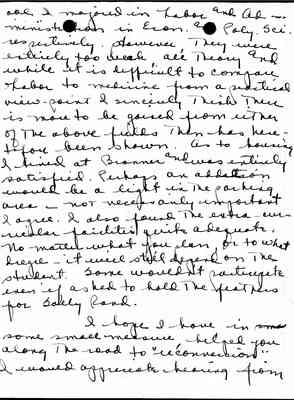 ool I majored in Labor and Ad-
ministration in Econ. and Poly Sci.
respectively. However They were
entirely too weak, all Theory and
while it is difficult to compare
Labor to medicine from a practical
view-point I sincerely Think There
is more to be gained from either
of The above fields Than has here-
tofore been shown. As to housing
I lived at Branner and was entirely
satisfied. Perhaps an addition
would be a light in The parking
area - not necessarily important
I agree. I also found The extra-cur-
ricular facilities quite adequate.
No matter what you plan, or to what
degree - it will still depend on The
student. Some wouldn't participate
even if asked to hold The feathers
for Sally Rand.
I hope I have in
some small measure helped you
along The road to "reconversion"
I would appreciate hearing from